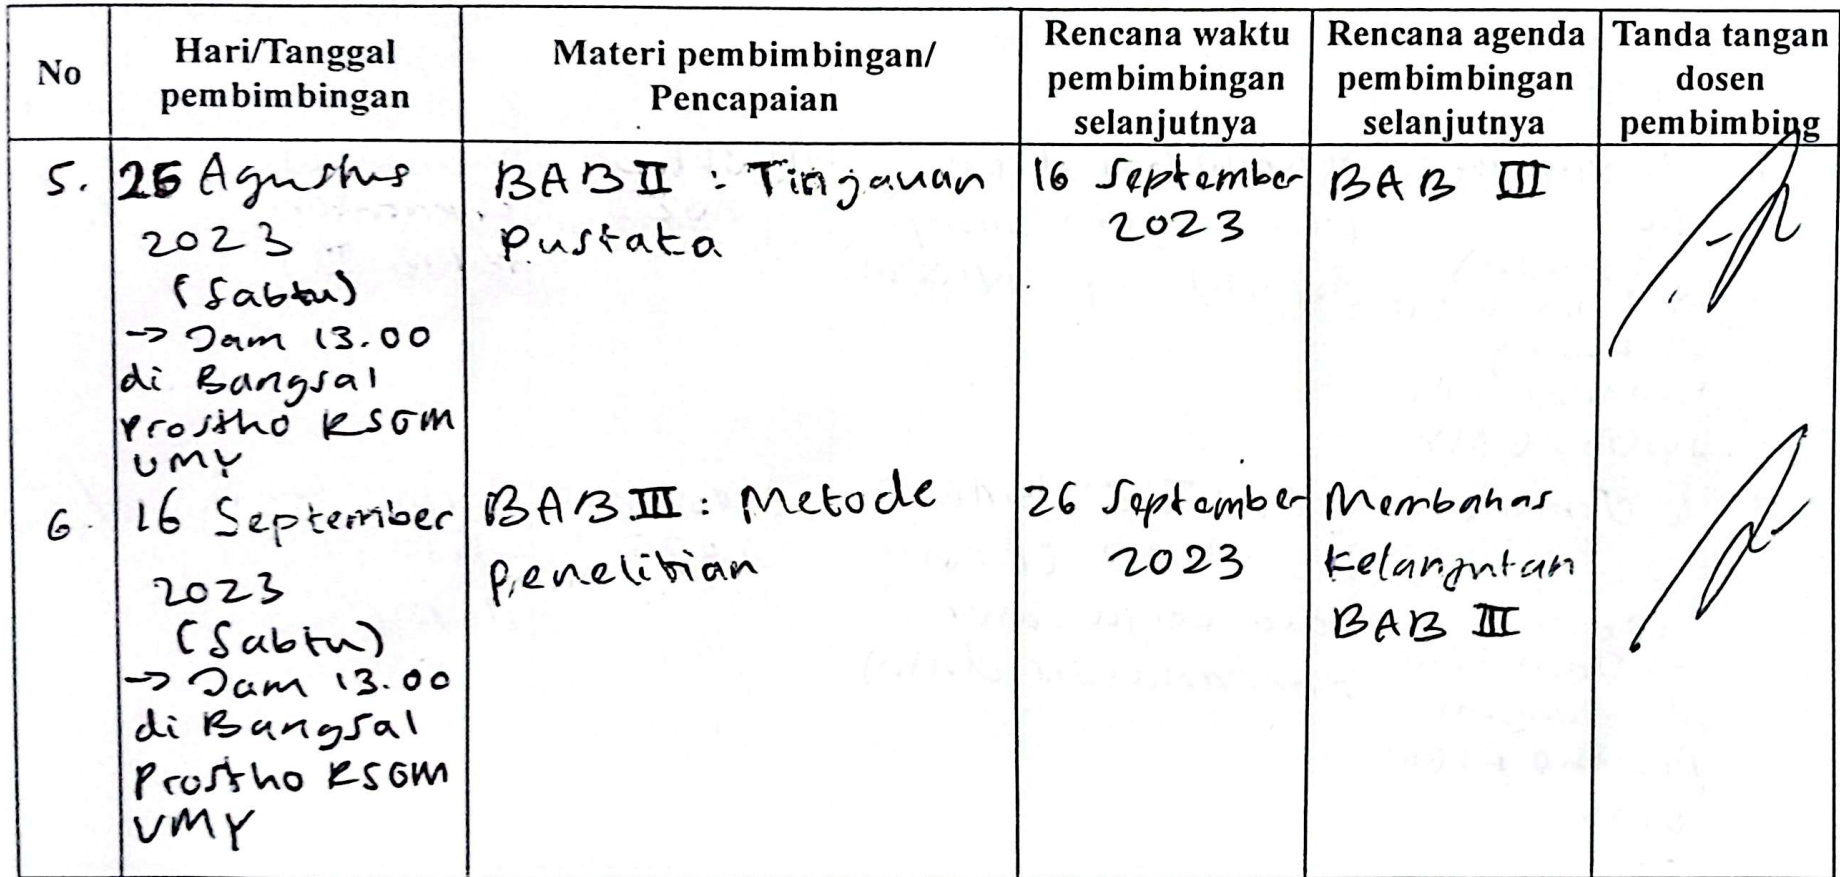 No
Hari/Tanggal
pembimbingan
Materi pembimbingan/
Pencapaian
Rencana waktu
pembimbingan
selanjutnya
Rencana agenda
pembimbingan
selanjutnya
Tanda tangan
dosen
pembimbing
5.
Agustus
2023
(Sabtu)
→ Jam 13.00
di Bangsal
Prostho RSGM
UMY
BAB II : Tinjauan
Pustaka
16 September
2023
BAB III
6.
16 September
2023
(Sabtu)
→ Jam 13.00
di Bangsal
Prostho RSGM
UMY
BAB III : Metode
Penelitian
26 September
2023
Membahas
Kelanjutan
BAB III